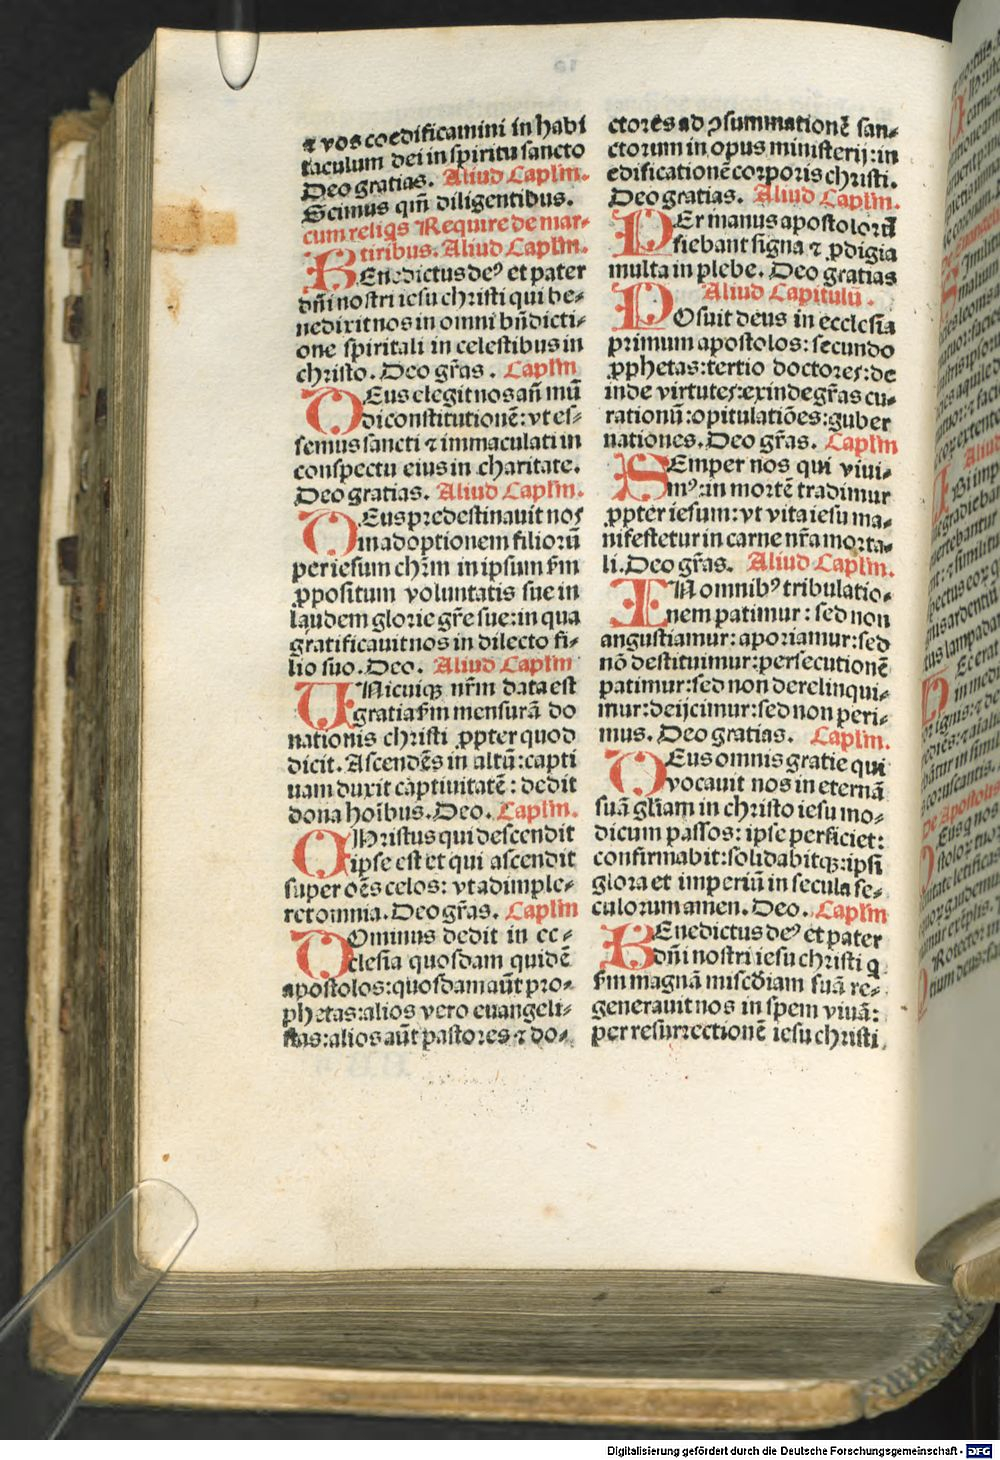 ⁊ vos coedificamini in habi
taculum dei in spiritu sancto
Deo gratias. Aliud Caplm̄.
Scimus qm̄ diligentibus.
cum reliqs Require de mar-
tiribus. Aliud Caplm̄.
BEnedictus deꝰ et pater
dn̄i nostri iesu christi qui be-
nedixit nos in omni bn̄dicti-
one spiritali in celestibus in
christo. Deo gr̄as. Caplm̄
DEus elegit nos an̄ mū
di constitutionē: vt es-
semus sancti ⁊ immaculati in
conspectu eius in charitate.
Deo gratias. Aliud Caplm̄.
DEus predestinauit nos
in adoptionem filiorū
per iesum chr̄m in ipsum fm̄
ꝓpositum voluntatis sue in
laudem glorie gr̄e sue: in qua
gratificauit nos in dilecto fi-
lio suo. Deo. Aliud Caplm̄
UNicuiqꝫ nr̄m data est
gratia fm̄ mensurā do
nationis christi ꝓpter quod
dicit. Ascendēs in altū: capti
uam duxit captiuitatē: dedit
dona hoībus. Deo. Caplm̄.
CHristus qui descendit
ipse est et qui ascendit
super oēs celos: vt adimple-
ret omnia. Deo gr̄as. Caplm̄
DOminus dedit in ec-
clesia quosdam quidē
apostolos: quosdam aūt pro-
phetas: alios vero euangeli-
stas: alios aūt pastores ⁊ do-
ctores ad ꝯsummationē san-
ctorum in opus ministerij: in
edificationē corporis christi.
Deo gratias. Aliud Caplm̄.
PEr manus apostolorū
fiebant signa ⁊ ꝓdigia
multa in plebe. Deo gratias
Aliud Capitulū.
POsuit deus in ecclesia
primum apostolos: secundo
ꝓphetas: tertio doctores: de
inde virtutes: exinde gr̄as cu-
rationū: opitulatiōes: guber
nationes. Deo gr̄as. Caplm̄
SEmper nos qui viui-
mꝰ: in mortē tradimur
ꝓpter iesum: vt vita iesu ma-
nifestetur in carne nr̄a morta-
li. Deo gr̄as. Aliud Caplm̄.
IN omnibꝰ tribulatio-
nem patimur: sed non
angustiamur: aporiamur: sed
nō destituimur: persecutionē
patimur: sed non derelinqui-
mur: deijcimur: sed non peri-
mus. Deo gratias. Caplm̄.
DEus omnis gratie qui
vocauit nos in eternā
suā gl̄iam in christo iesu mo-
dicum passos: ipse perficiet:
confirmabit: solidabitqꝫ: ipsi
glora et imperiū in secula se-
culorum amen. Deo. Caplm̄
BEnedictus deꝰ et pater
dn̄i nostri iesu christi q
fm̄ magnā misc̄diam suā re-
generauit nos in spem viuā:
per resurrectionē iesu christi
Digitalisierung gefördert durch die Deutsche Forschungsgemeinschaft - DFG